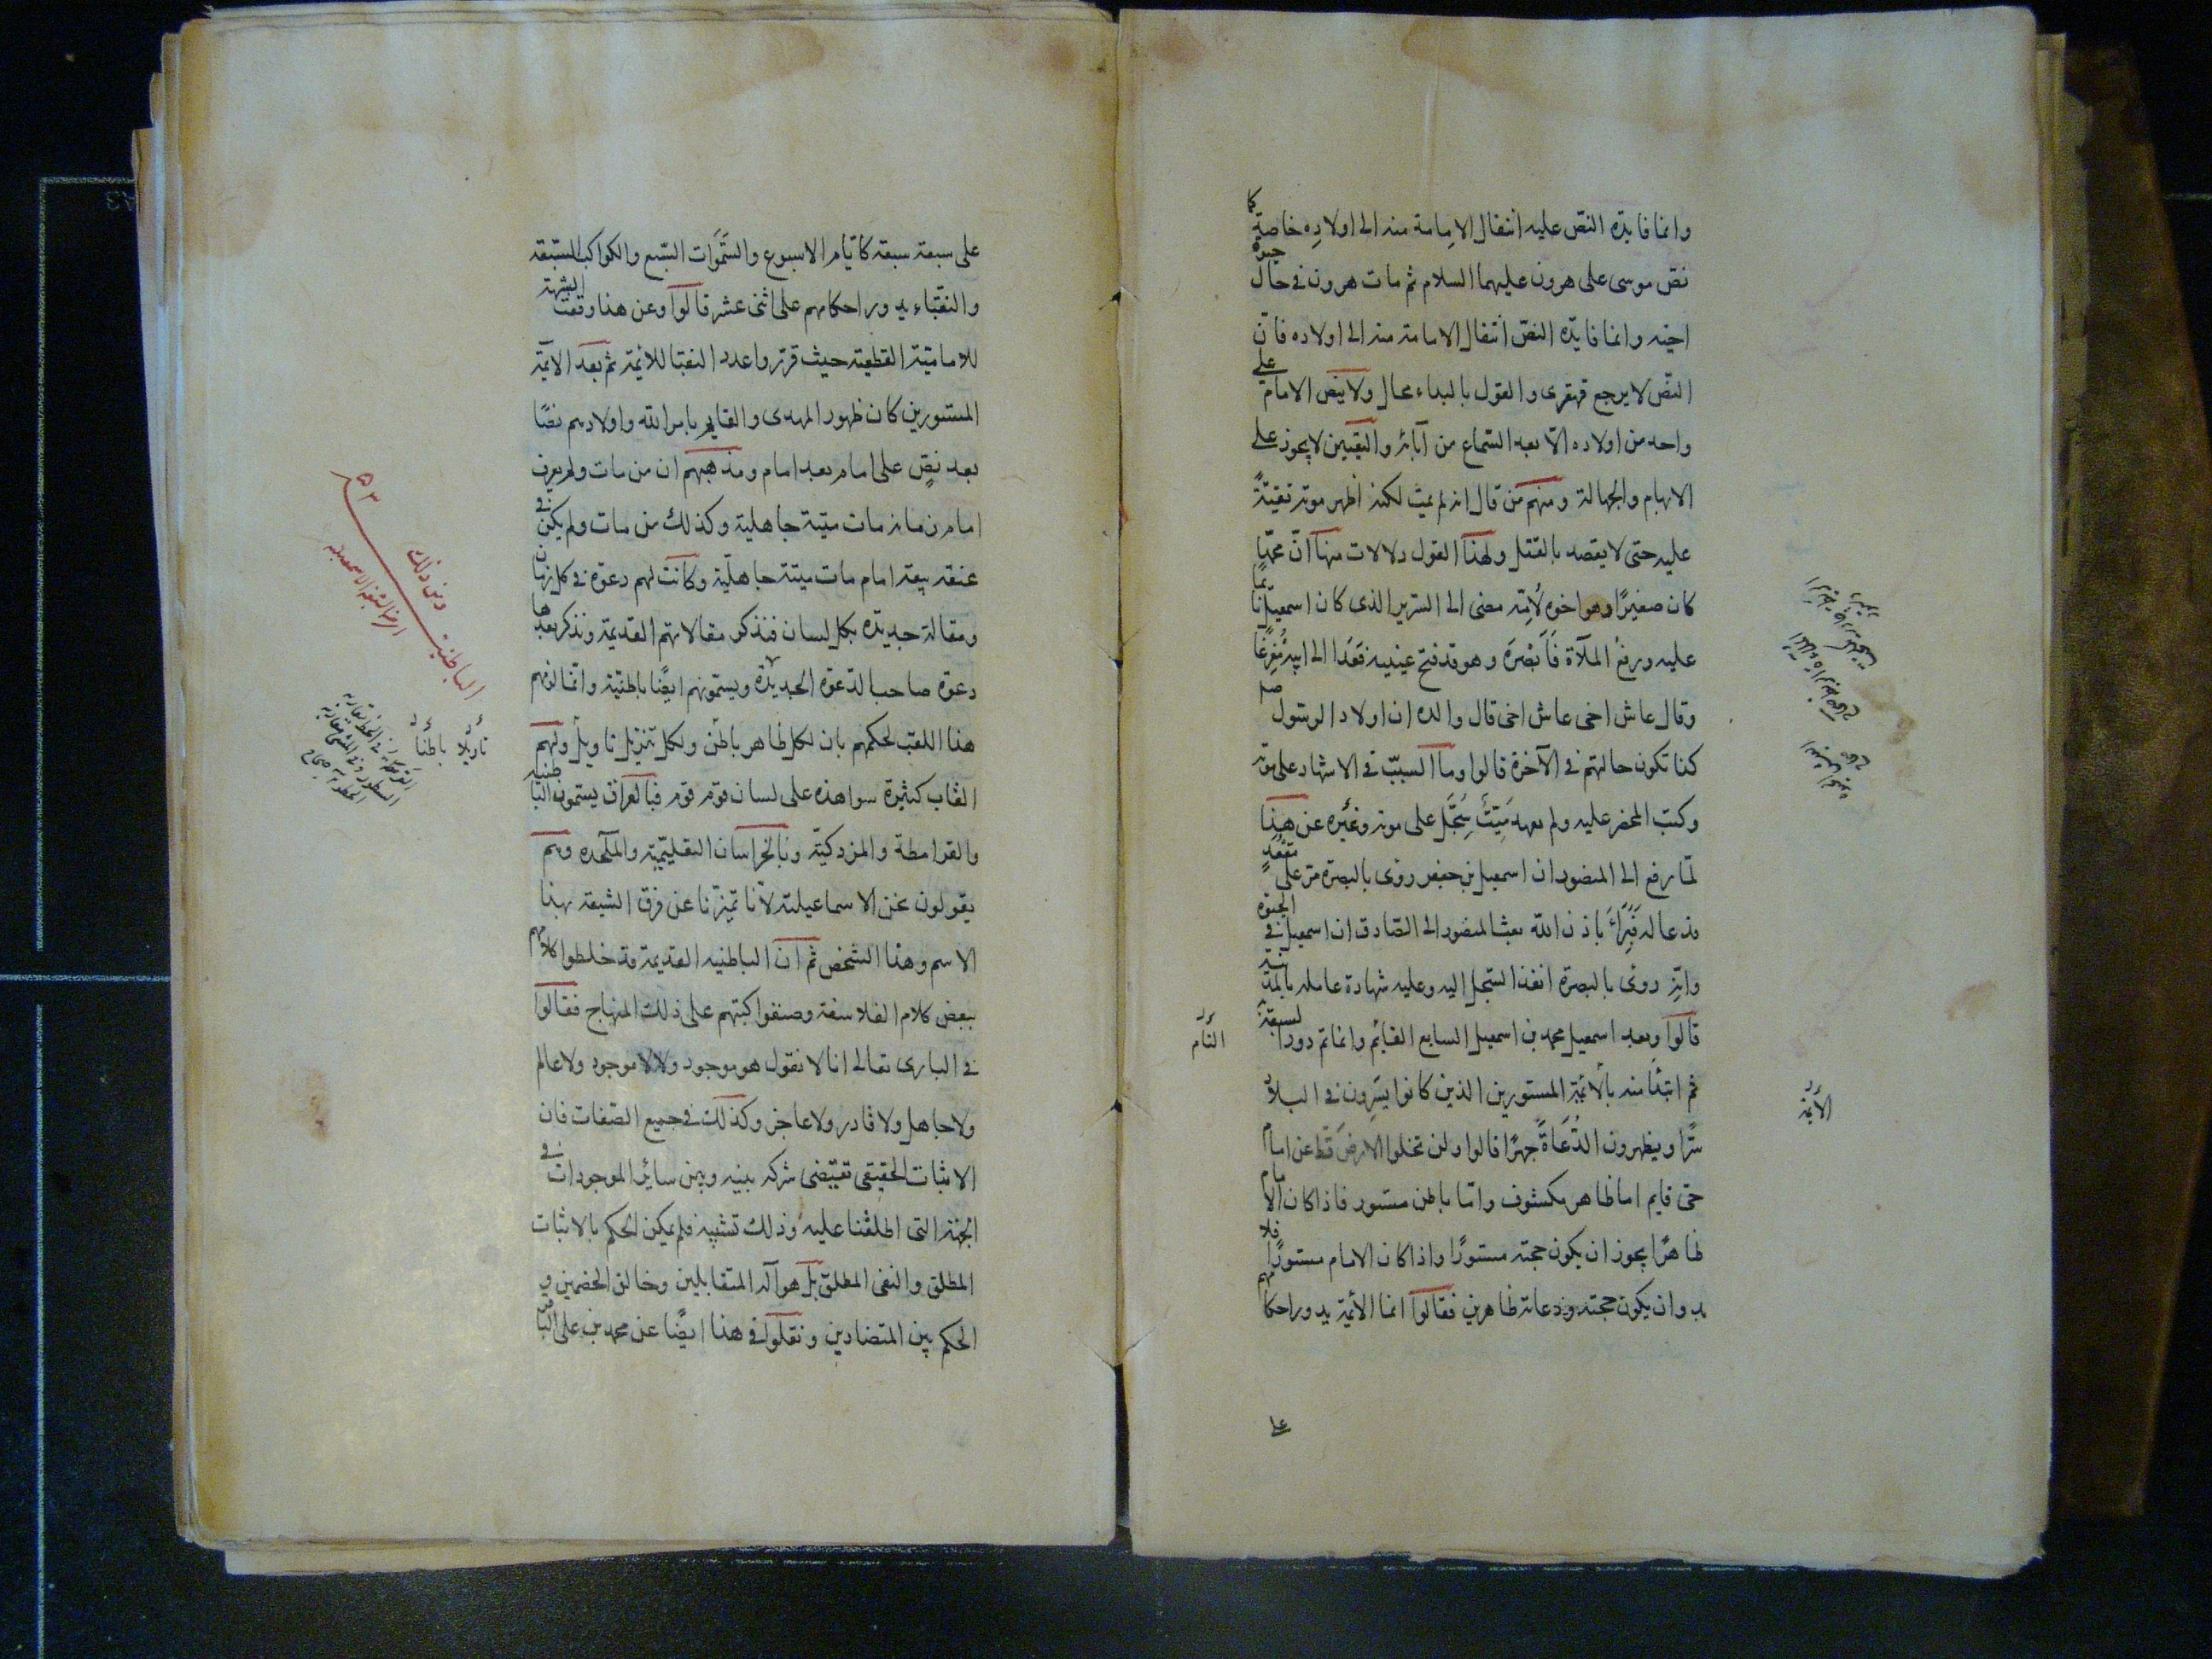 وانما فايدة النص عليه انتقال الامامة منه الى اولاده خاصة كما
نص موسى على هرون عليهما السلام ثم مات هرون فى حال حيوة
اخيه وانما فايدة النص انتقال الامامة منه الى اولاده فان
النص لا يرجع قهقرى والقول بالبداء محال ولا ينص الامام على
واحد من اولاده الا بعد السماع من آبائه والتعيين لا يجوز على
الابهام والجهالة ومنهم من قال انه لم يمت لكنه اظهر موته تقيّةً
عليه حتى لا يقصد بالقتل ولهذا القول دلالات منها انّ محمدا
كان صغيرًا وهو اخوه لامّه مضى الى السرير الذى كان اسمعيل نائما
عليه ورفع الملآة فَاَبْصَرَه وهو قد فتح عينيه فعَدَا الى ابيه مُفزعًا
وقال عاش اخى عاش اخى قال والده ان اولاد الرسول صلع
كذا تكون حالتهم فى الآخرة قالوا وما السبب فى الاشهاد على موته
وكتب المحضر عليه ولم نعهد مَيّتًا سُجِّل على موته وغيره عن هذا
لمّا رفع الى المنصور ان اسمعيل بن جعفر رؤى بالبصرة مر على مُقْعَدٍ
فدعا له فَبَرَاَ باذن الله بعث المنصور الى الصّادق ان اسمعيل فى الحيوة
وانّه روئى بالبصرة انفذ السّجل اليه وعليه شهادة عامله بالمدينة
قالوا وبعد اسمعيل محمد بن اسمعيل السابع القايم وانما تم دور السبعة
التام
ثم ابتدا منه بالائمة المستورين الذين كانوا يسرون فى البلاد
الائمة
سرًّا ويظهرون الدُعَاةَ جهرًا قالوا ولن تخلوا الارض قط عن امام
حىّ قايم اما ظاهر مكشوف وامّا باطن مستور فاذا كان الامام
ظاهرًا يجوز ان يكون حجته مستورًا واذا كان الامام مستورًا فلا
بد وان يكون حجته ودعاته ظاهرين فقالوا انما الأئمة يدور احكامهم
على
على سبعة سبعة كايّام الاسبوع والسّموات السّبع والكواكب السّبعة
والنقباء يدور احكامهم على اثنى عشر قالوا وعن هذا وقعت الشبهة
للاماميّة القطعية حيث قرّروا عدد النقبا للائمة ثم بعد الايمّة
المستورين كان ظهور المهدى والقايم بامر الله واولادهم نصًّا
بعد نصٍّ على امام بعد امام ومذهبهم ان من مات ولم يعرف
امام زمانه مات ميتة جاهلية وكذلك من مات ولم يكن فى
عنقه بيعة امام مات ميتة جاهليّة وكانت لهم دعوة فى كل زمان
ومقالة جديدة بكل لسان فنذكر مقالاتهم القديمة ونذكر بعدها
دعوة صاحب الدعوة الجديدة ويسمونهم ايضًا باطنيّة وانما لزمهم
هذا اللقب لحكمهم بان لكل ظاهر باطن ولكل تنزيل تاويل ولهم
تاويلا باطنا
القاب كثيرة سوا هذه على لسان قوم قوم فبالعراق يسمون الباطنية
والقرامطة والمزدكيّة وبالخراسان التعليميّة والملحده وهم
يقولون نحن الاسماعيلية لانّا تميّزنا عن فرق الشيعة بهذا
الاسم وهذا الشخص ثم ان الباطنيه القديمة قد خلطوا كلامهم
ببعض كلام الفلاسفة وصنفوا كتبهم على ذلك المنهاج فقالوا
فى البارى تعالى انا لا نقول هو موجود ولا لا موجود ولا عالم
ولا جاهل ولا قادر ولا عاجز وكذلك فى جميع الصّفات فان
الاثبات الحقيقى تقتضى شركه بينه وبين ساير الموجودات فى
الجهة التى اطلقنا عليه وذلك تشبيه فلم يمكن الحكم بالاثبات
المطلق والنفى المطلق بل هو آله المتقابلين وخالق الخصمين و
الحكم بين المتضادين ونقلوا فى هذا ايضًا عن محمد بن على الباقر
٥٣
الباطنية
ومن ذلك